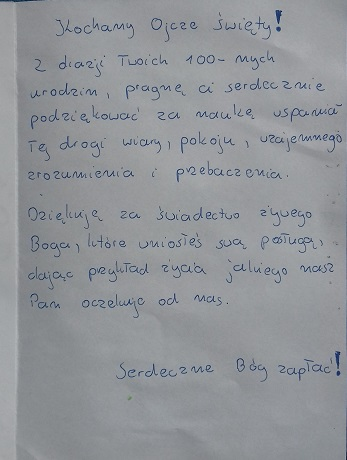 Kochany Ojcze Święty!
Z okazji Twoich 100-nych
urodzin, pragnę ci serdecznie
podziękować za naukę wspania
łej drogi wiary, pokoju, wzajemnego
zrozumienia i przebaczenia.
Dziękuję za świadectwo żywego
Boga, które wniosłeś swą posługą,
dając przykład życia jakiego nasz
Pan oczekuje od nas.
Serdeczne Bóg zapłać!